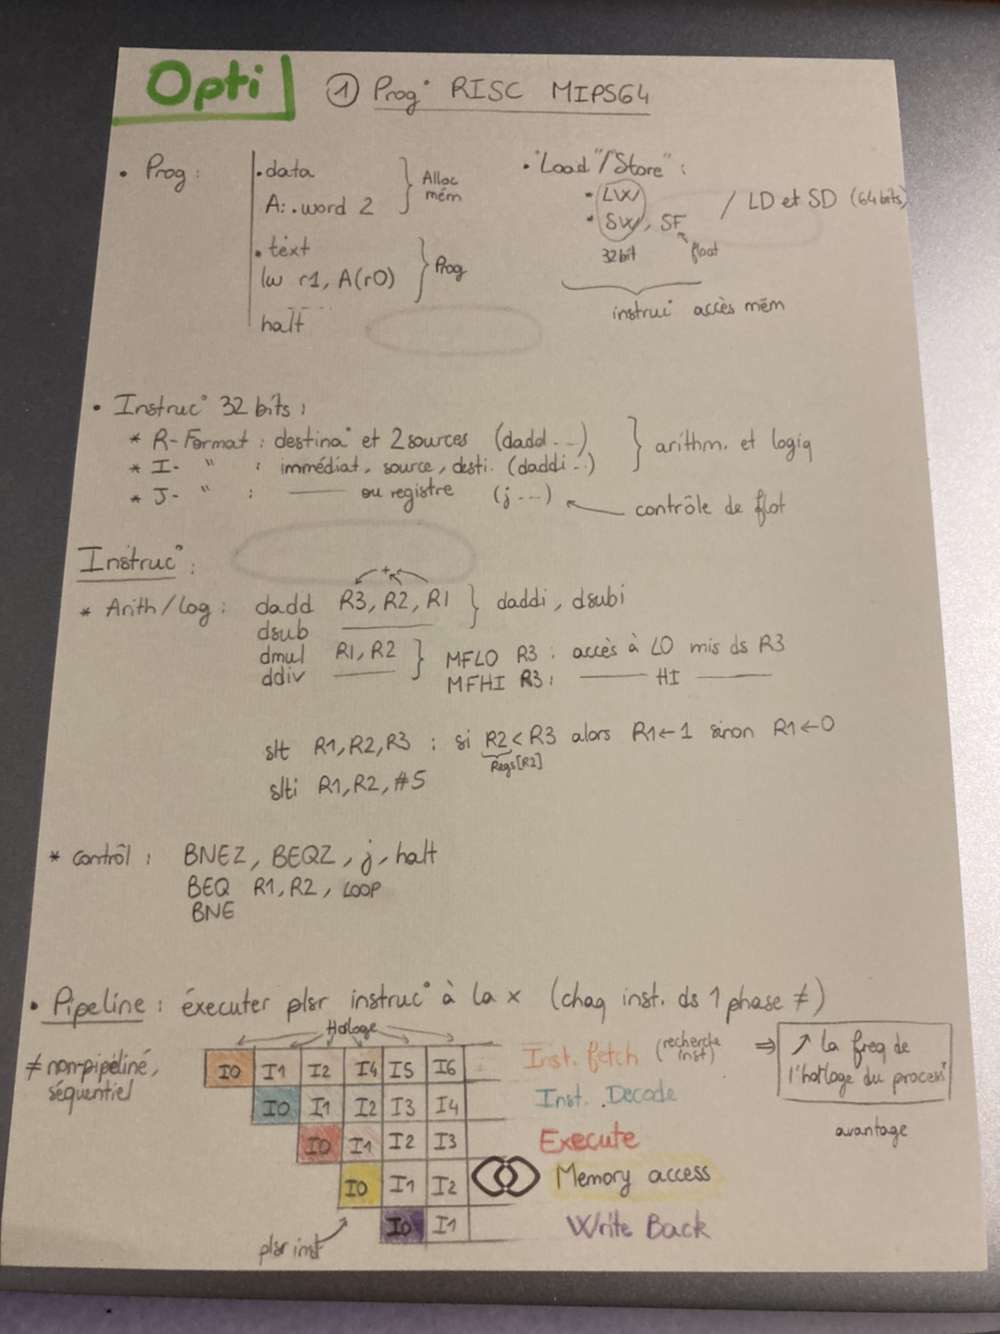 Opti
① Prog° RISC MIPS64
• Prog :
.data
A: .word 2
} Alloc mém
.text
lw r1, A(r0)
} Prog
halt
• "Load"/"Store" :
• LW
• SW, SF / LD et SD (64 bits)
32bit float
instruc° accès mém
• Instruc° 32 bits :
* R-Format : destina° et 2 sources (dadd ...)
* I- " : immédiat, source, desti. (daddi ..)
} arithm. et logiq
* J- " : —— ou registre (j ...) ← contrôle de flot
Instruc° :
* Arith/log : dadd R3, R2, R1 } daddi, dsubi
+
dsub ———
dmul R1, R2 } MFLO R3 : accès à LO mis ds R3
ddiv —— MFHI R3 : —— HI ——
slt R1, R2, R3 : si R2 < R3 alors R1 ← 1 sinon R1 ← 0
Regs[R2]
slti R1, R2, #5
* Contrôl : BNEZ, BEQZ, j, halt
BEQ R1, R2, LOOP
BNE
• Pipeline : éxecuter plsr instruc° à la × (chaq inst. ds 1 phase ≠)
≠ non-pipéliné, séquentiel
Horloge
I0 I1 I2 I4 I5 I6 Inst. fetch (recherche inst)
I0 I1 I2 I3 I4 Inst. Decode
I0 I1 I2 I3 Execute
I0 I1 I2 Memory access
I0 I1 Write Back
plsr inst
⇒ ↗ la freq de
l'horloge du process°
avantage